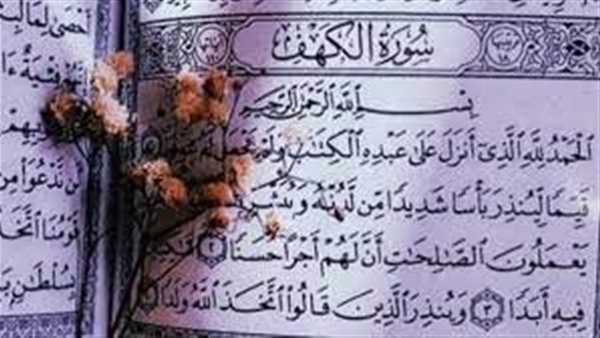 سُورَةُ الْكَهْفِ
بِسْمِ ٱللَّهِ ٱلرَّحْمَٰنِ ٱلرَّحِيمِ
ٱلْحَمْدُ لِلَّهِ ٱلَّذِىٓ أَنزَلَ عَلَىٰ عَبْدِهِ ٱلْكِتَٰبَ وَلَمْ يَجْعَل لَّهُۥ
قَيِّمًا لِّيُنذِرَ بَأْسًا شَدِيدًا مِّن لَّدُنْهُ
يَعْمَلُونَ ٱلصَّٰلِحَٰتِ أَنَّ لَهُمْ أَجْرًا حَسَنًا ٢
فِيهِ أَبَدًا ٣ وَيُنذِرَ ٱلَّذِينَ قَالُوا۟ ٱتَّخَذَ ٱللَّهُ وَلَدًا
أَحْصَىٰ لِمَا
فِتْيَةٌ
لَن نَّدْعُوَا۟ مِن
قَوْمُنَا